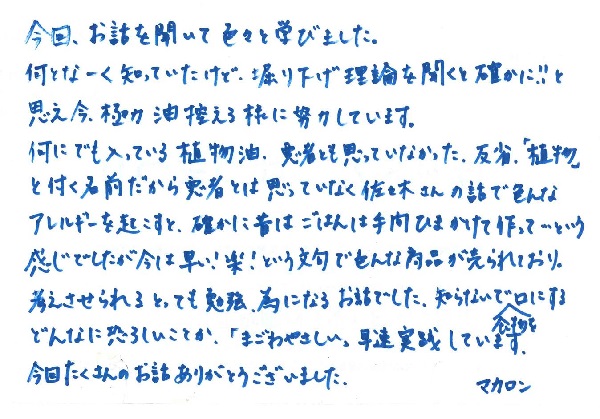 今回、お話を聞いて色々と学びました。
何となーく知っていたけど、堀り下げ理論を聞くと確かに!!と
思え今、極力油控える様に努力しています。
何にでも入っている植物油、悪者とも思っていなかった、反省、「植物」
と付く名前だから悪者とは思っていなく佐々木さんの話で色んな
アレルギーを起こすと、確かに昔はごはんは手間ひまかけて作って…という
感じでしたが今は早い!楽!という文句で色んな商品が売られており。
考えさせられるとっても勉強、為になるお話でした。知らないで口にする
食物を
どんなに恐ろしいことか、「まごわやさしい」早速実践しています。
今回たくさんのお話ありがとうございました。
マカロン